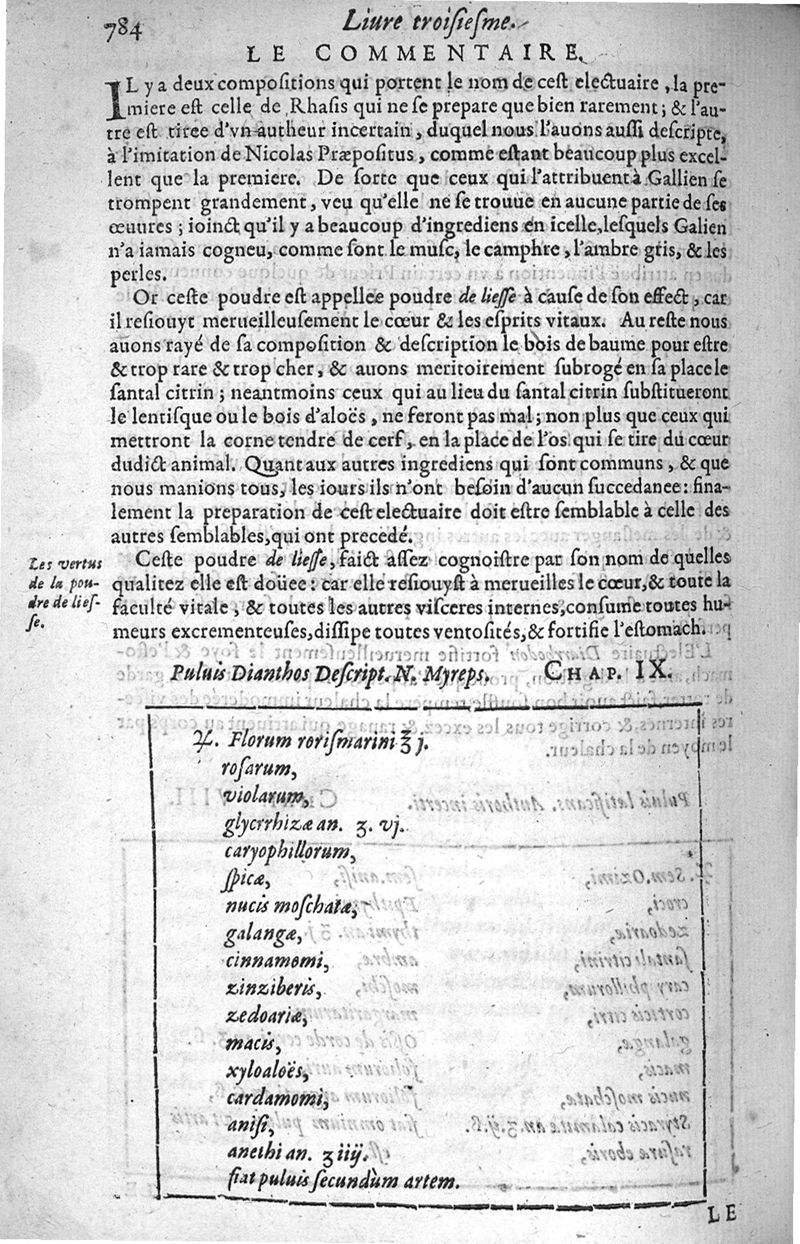 784
Liure troisiesme.
LE COMMENTAIRE.
IL y a deux compositions qui portent le nom de cest electuaire, la pre-
miere est celle de Rhasis qui ne se prepare que bien rarement; & l'au-
tre est tiree d'vn autheur incertain, duquel nous l'auons aussi descripte,
à l'imitation de Nicolas Præpositus, comme estant beaucoup plus excel-
lent que la premiere. De sorte que ceux qui l'attribuent à Gallien se
trompent grandement, veu qu'elle ne se trouue en aucune partie de ses
œuures; ioinct qu'il y a beaucoup d'ingrediens en icelle, lesquels Galien
n'a iamais cogneu, comme sont le musc, le camphre, l'ambre gris, & les
perles.
Or ceste poudre est appellee poudre de liesse à cause de son effect, car
il resiouyt merueilleusement le cœur & les esprits vitaux. Au reste nous
auons rayé de sa composition & description le bois de baume pour estre
& trop rare & trop cher, & auons meritoirement subrogé en sa place le
santal citrin; neantmoins ceux qui au lieu du santal citrin substitueront
le lentisque ou le bois d'aloës, ne feront pas mal; non plus que ceux qui
mettront la corne tendre de cerf, en la place de l'os qui se tire du cœur
dudict animal. Quant aux autres ingrediens qui sont communs, & que
nous manions tous, les iours ils n'ont besoin d'aucun succedanee: fina-
lement la preparation de cest electuaire doit estre semblable à celle des
autres semblables, qui ont precedé.
Les vertus
de la pou-
dre de lies-
se.
Ceste poudre de liesse, faict assez cognoistre par son nom de quelles
qualitez elle est doüee: car elle resiouyst à merueilles le cœur, & toute la
faculté vitale, & toutes les autres visceres internes, consume toutes hu-
meurs excrementeuses, dissipe toutes ventosités, & fortifie l'estomach.
Puluis Dianthos Descript. N. Myreps. CHAP. IX.
♃. Florum rorismarini ℥ j.
rosarum,
violarum,
glycrrhizæ an. ʒ. vj.
caryophillorum,
spicæ,
nucis moschatæ,
galangæ,
cinnamomi,
zinziberis,
zedoariæ,
macis,
xyloaloës,
cardamomi,
anisi,
anethi an. ʒ iiij.
fiat puluis secundùm artem.
LE